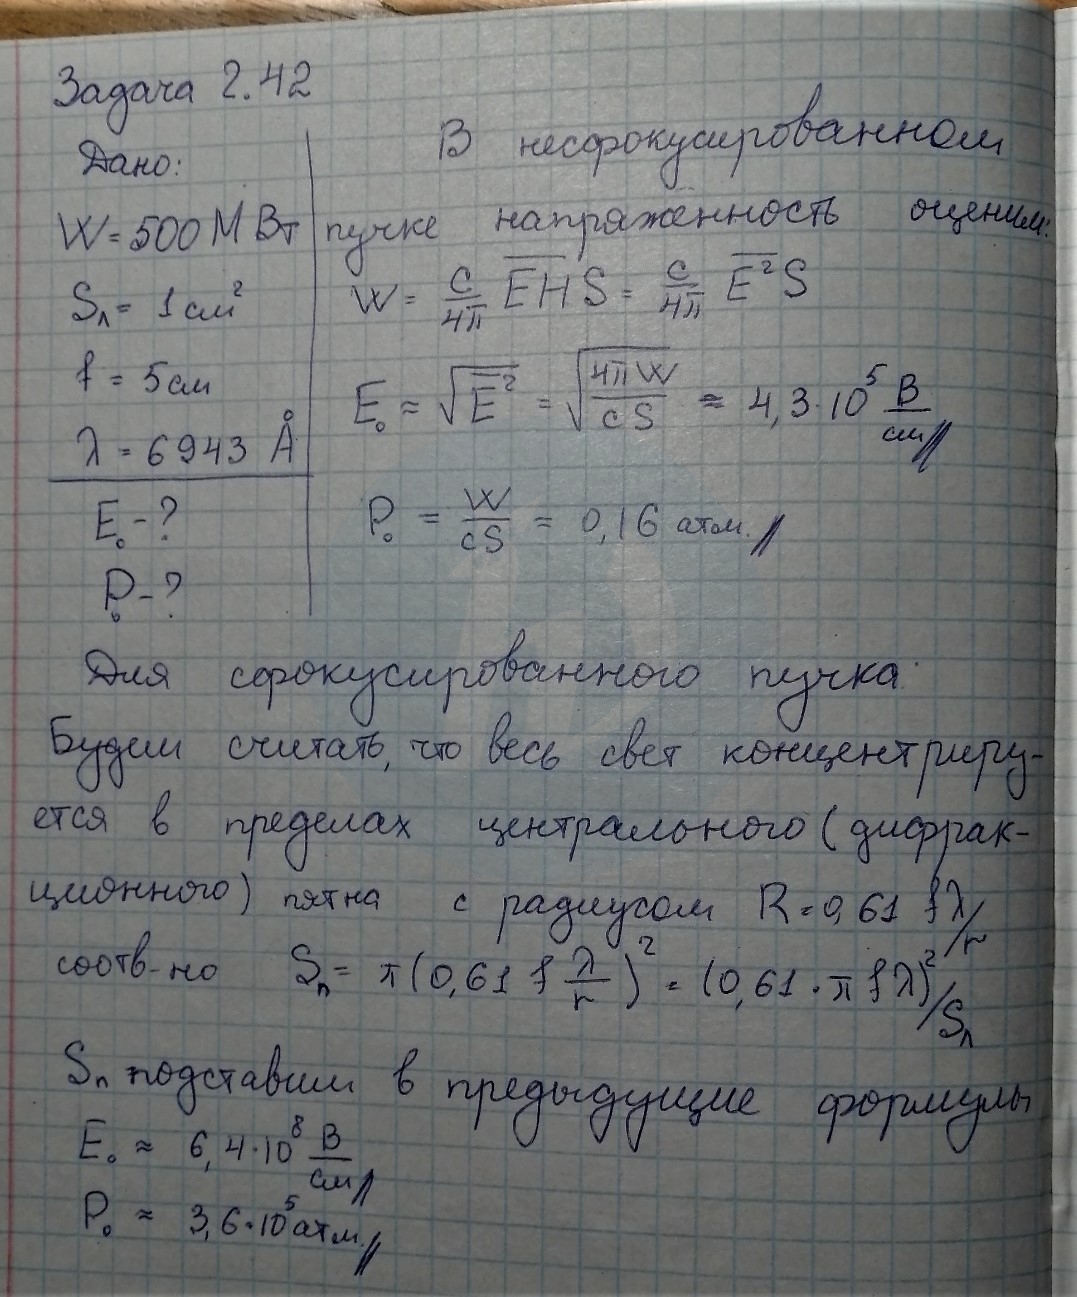 Задача 2.42
Дано:
W = 500 МВт
Sл = 1 см²
f = 5 см
λ = 6943 Å
E₀ - ?
P₀ - ?
В несфокусированном
пучке напряженность оценим:
W = c/4π E̅H̅ S = c/4π E̅²̅ S
E₀ ≈ √E̅²̅ = √(4πW/cS) ≈ 4,3·10⁵ В/см
P₀ = W/cS = 0,16 атм.
Для сфокусированного пучка:
Будем считать, что весь свет концентриру-
ется в пределах центрального (дифрак-
ционного) пятна с радиусом R = 0,61 fλ/r
соотв-но Sп = π(0,61 f λ/r)² = (0,61·π fλ)²/Sл
Sп подставим в предыдущие формулы
E₀ ≈ 6,4·10⁸ В/см
P₀ ≈ 3,6·10⁵ атм.